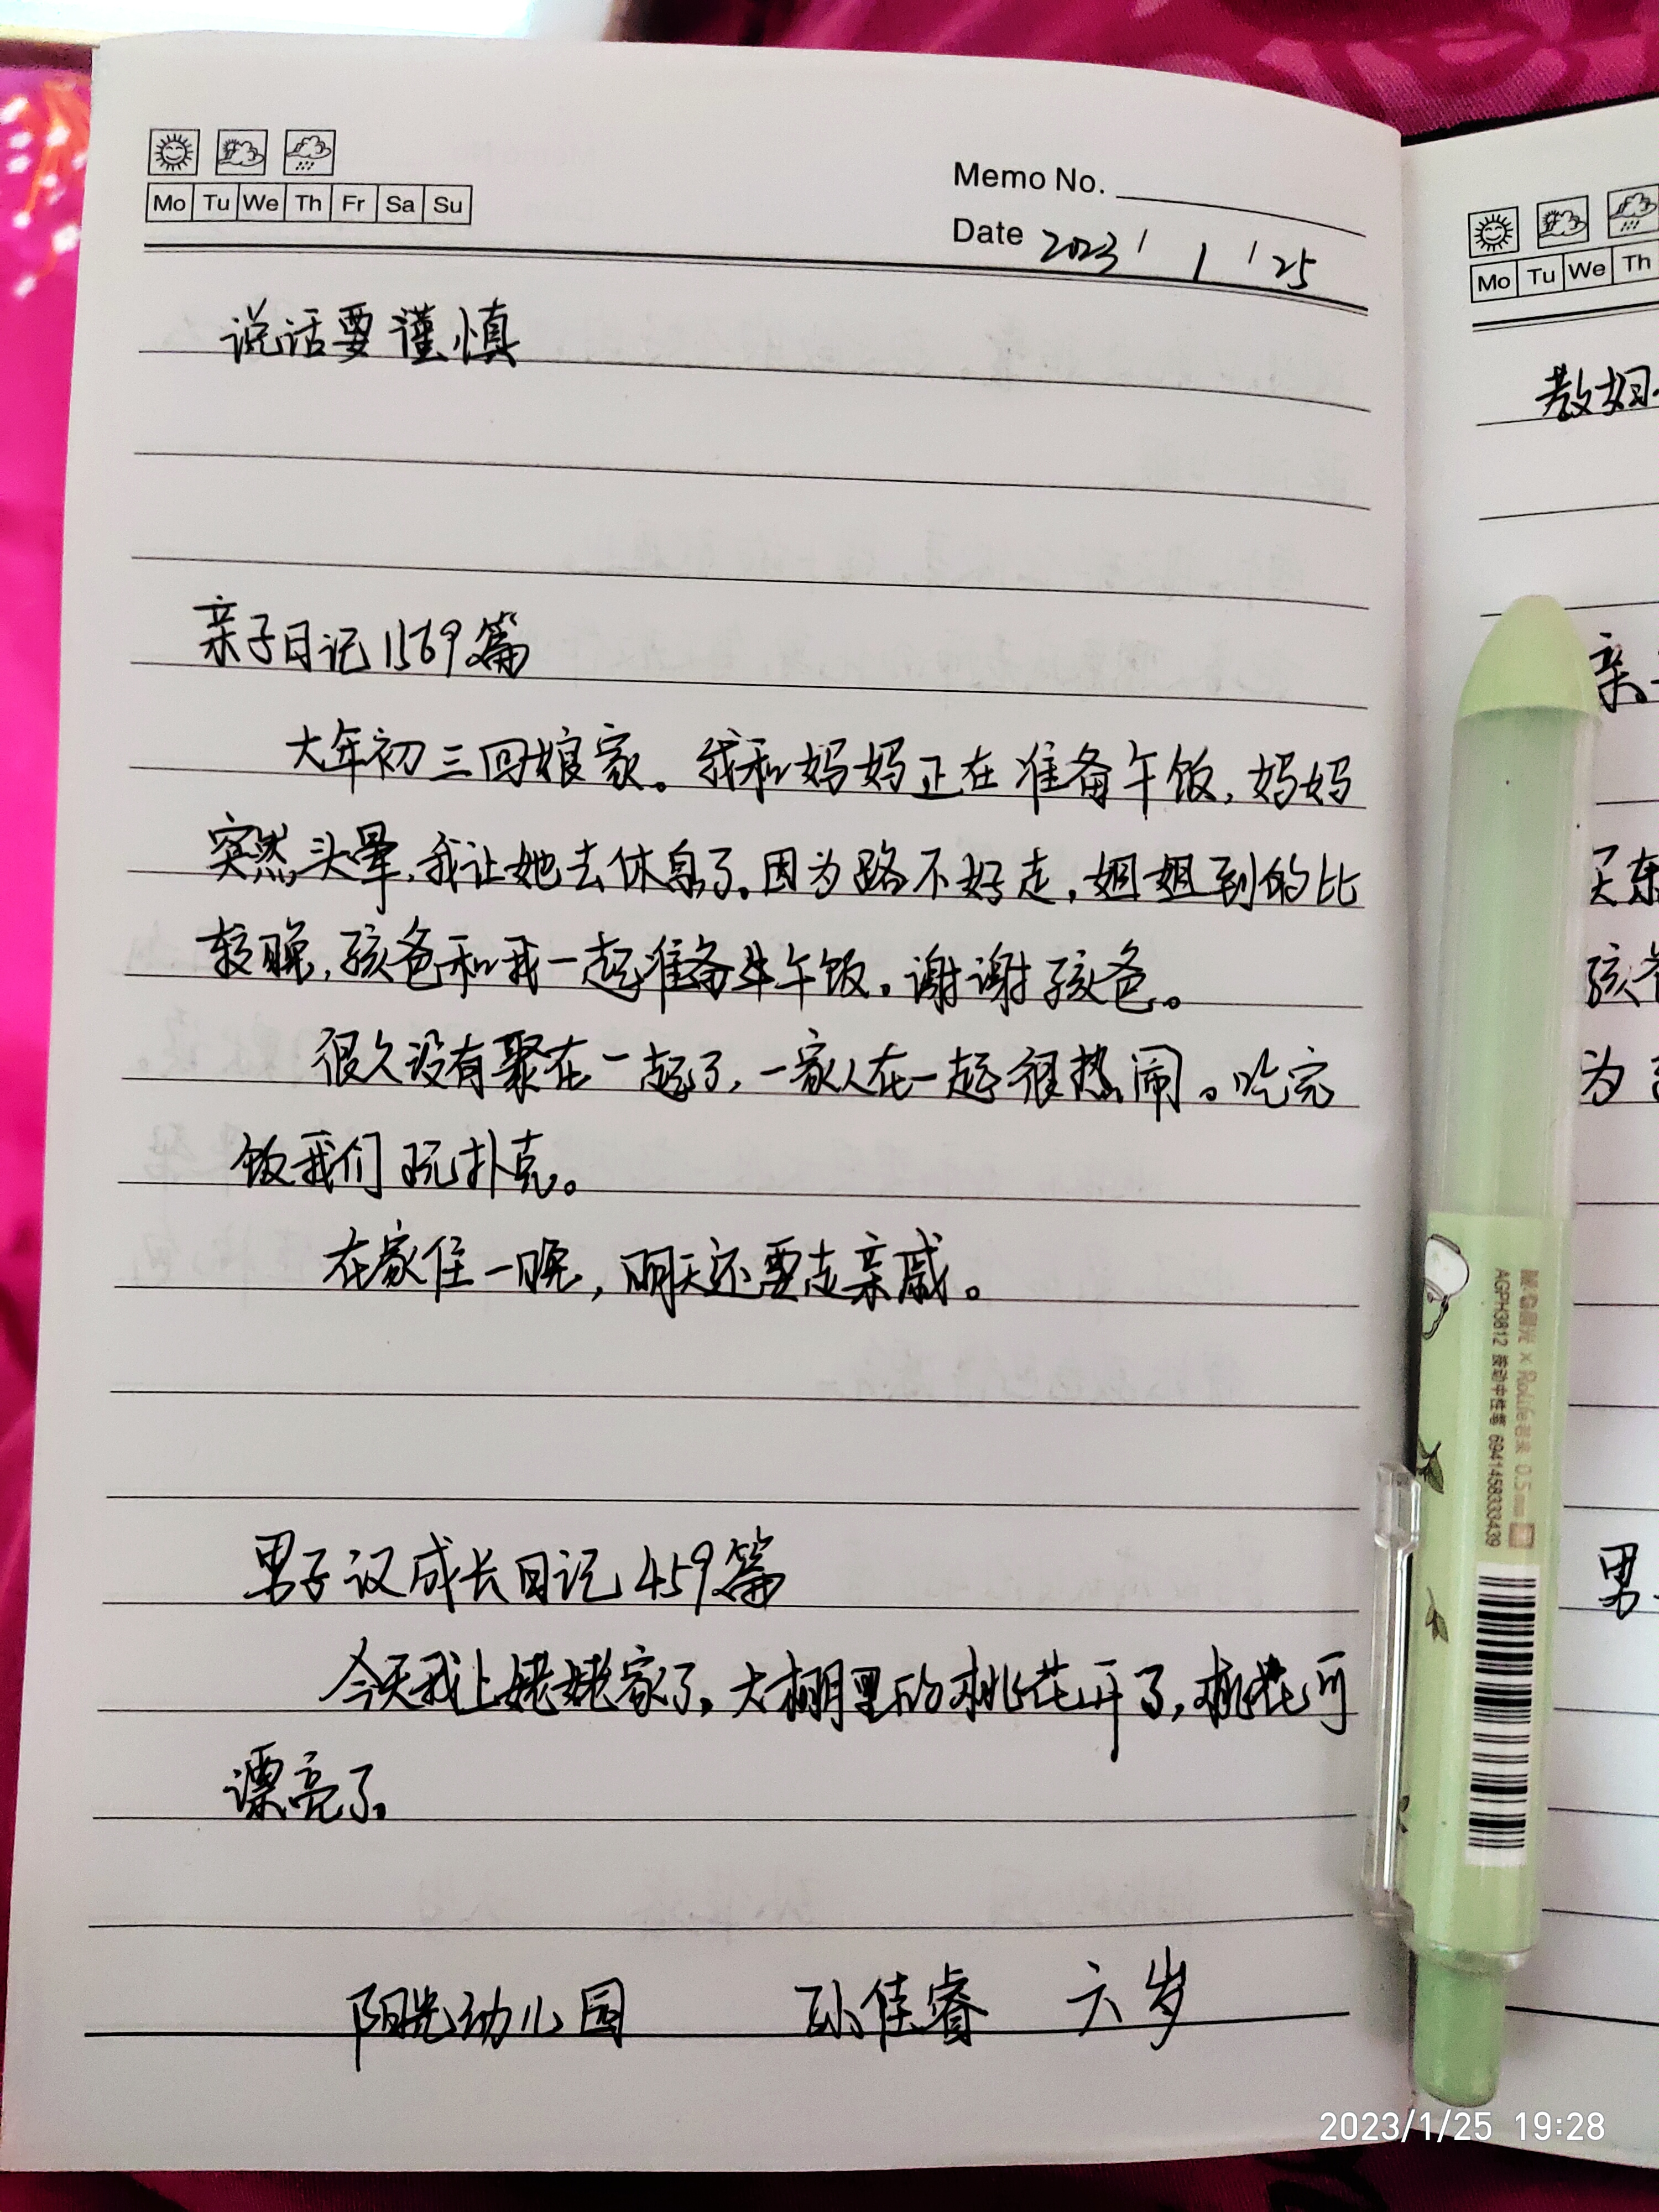 Mo Tu We Th Fr Sa Su
Memo No.
Date 2023 / 1 / 25
说话要谨慎
亲子日记1569篇
大年初三回娘家。我和妈妈正在准备午饭,妈妈
突然头晕,我让她去休息了。因为路不好走,姐姐到的比
较晚,孩爸和我一起准备午饭。谢谢孩爸。
很久没有聚在一起了,一家人在一起很热闹。吃完
饭我们玩扑克。
在家住一晚,明天还要走亲戚。
男子汉成长日记459篇
今天我上姥姥家了,大棚里的桃花开了,桃花可
漂亮了。
阳光幼儿园 孙佳睿 六岁
Mo Tu We Th
教姐
亲
买东
孩爸
为
男
AGPH3812 按动中性笔 6941458333439
0.5mm
2023/1/25 19:28